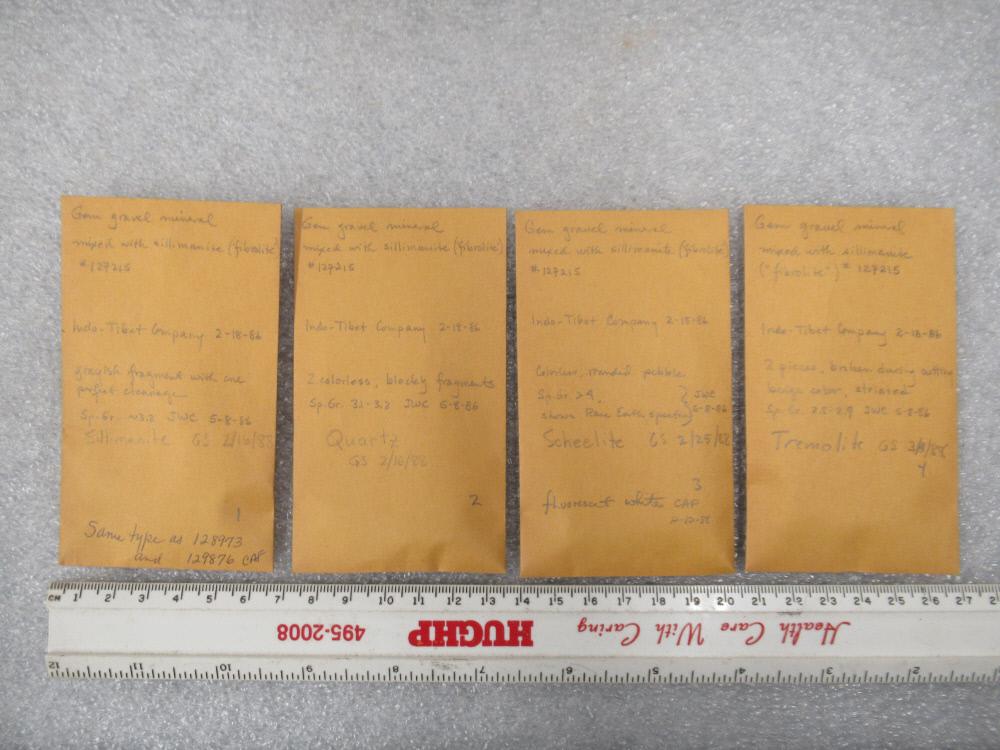 Gem gravel mineral
mixed with sillimanite ("fibrolite")
# 127215
Indo-Tibet Company 2-18-86
grayish fragment with one
perfect cleavage
Sp. Gr. ~3.2 JWC 5-8-86
Sillimanite GS 2/16/88
1
Same type as 128973
and 129876 CAF
Gem gravel mineral
mixed with sillimanite ("fibrolite")
# 127215
Indo-Tibet Company 2-18-86
2 colorless, blocky fragments
Sp. Gr. 3.1-3.2 JWC 5-8-86
Quartz
GS 2/16/88
2
Gem gravel mineral
mixed with sillimanite ("fibrolite")
# 127215
Indo-Tibet Company 2-18-86
Colorless, rounded pebble
Sp. Gr. >4,
shows Rare Earth spectra
JWC
5-8-86
Scheelite GS 2/25/88
3
fluorescent white CAF
Gem gravel mineral
mixed with sillimanite
("fibrolite") # 127215
Indo-Tibet Company 2-18-86
2 pieces, broken during cutting
beige color, striated
Sp. Gr. 2.8-2.9 JWC 5-8-86
Tremolite GS
4
CM 1 2 3 4 5 6 7 8 9 10 11 12 13 14 15 16 17 18 19 20 21 22 23 24 25 26 27 2
Health Care With Caring HUGHP 495-2008
2 3 4 5 6 7 8 9 10 11 12